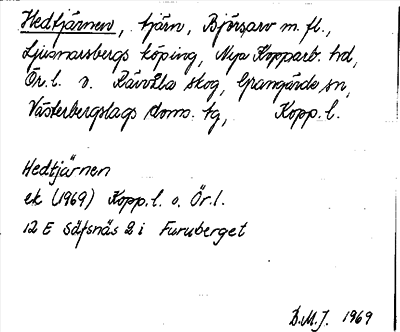 Hedtjärnen, tjärn, Björsarv m. fl.,
Ljusnarsbergs köping, Nya Kopparb. hd,
Ör. l. o. Rävvåla skog, Grangärde sn,
Västerbergslags doms. tg, Kopp. l.
Hedtjärnen
ek (1969) Kopp. l. o. Ör. l.
12 E Säfsnäs 2 i Furuberget
D.M.J. 1969